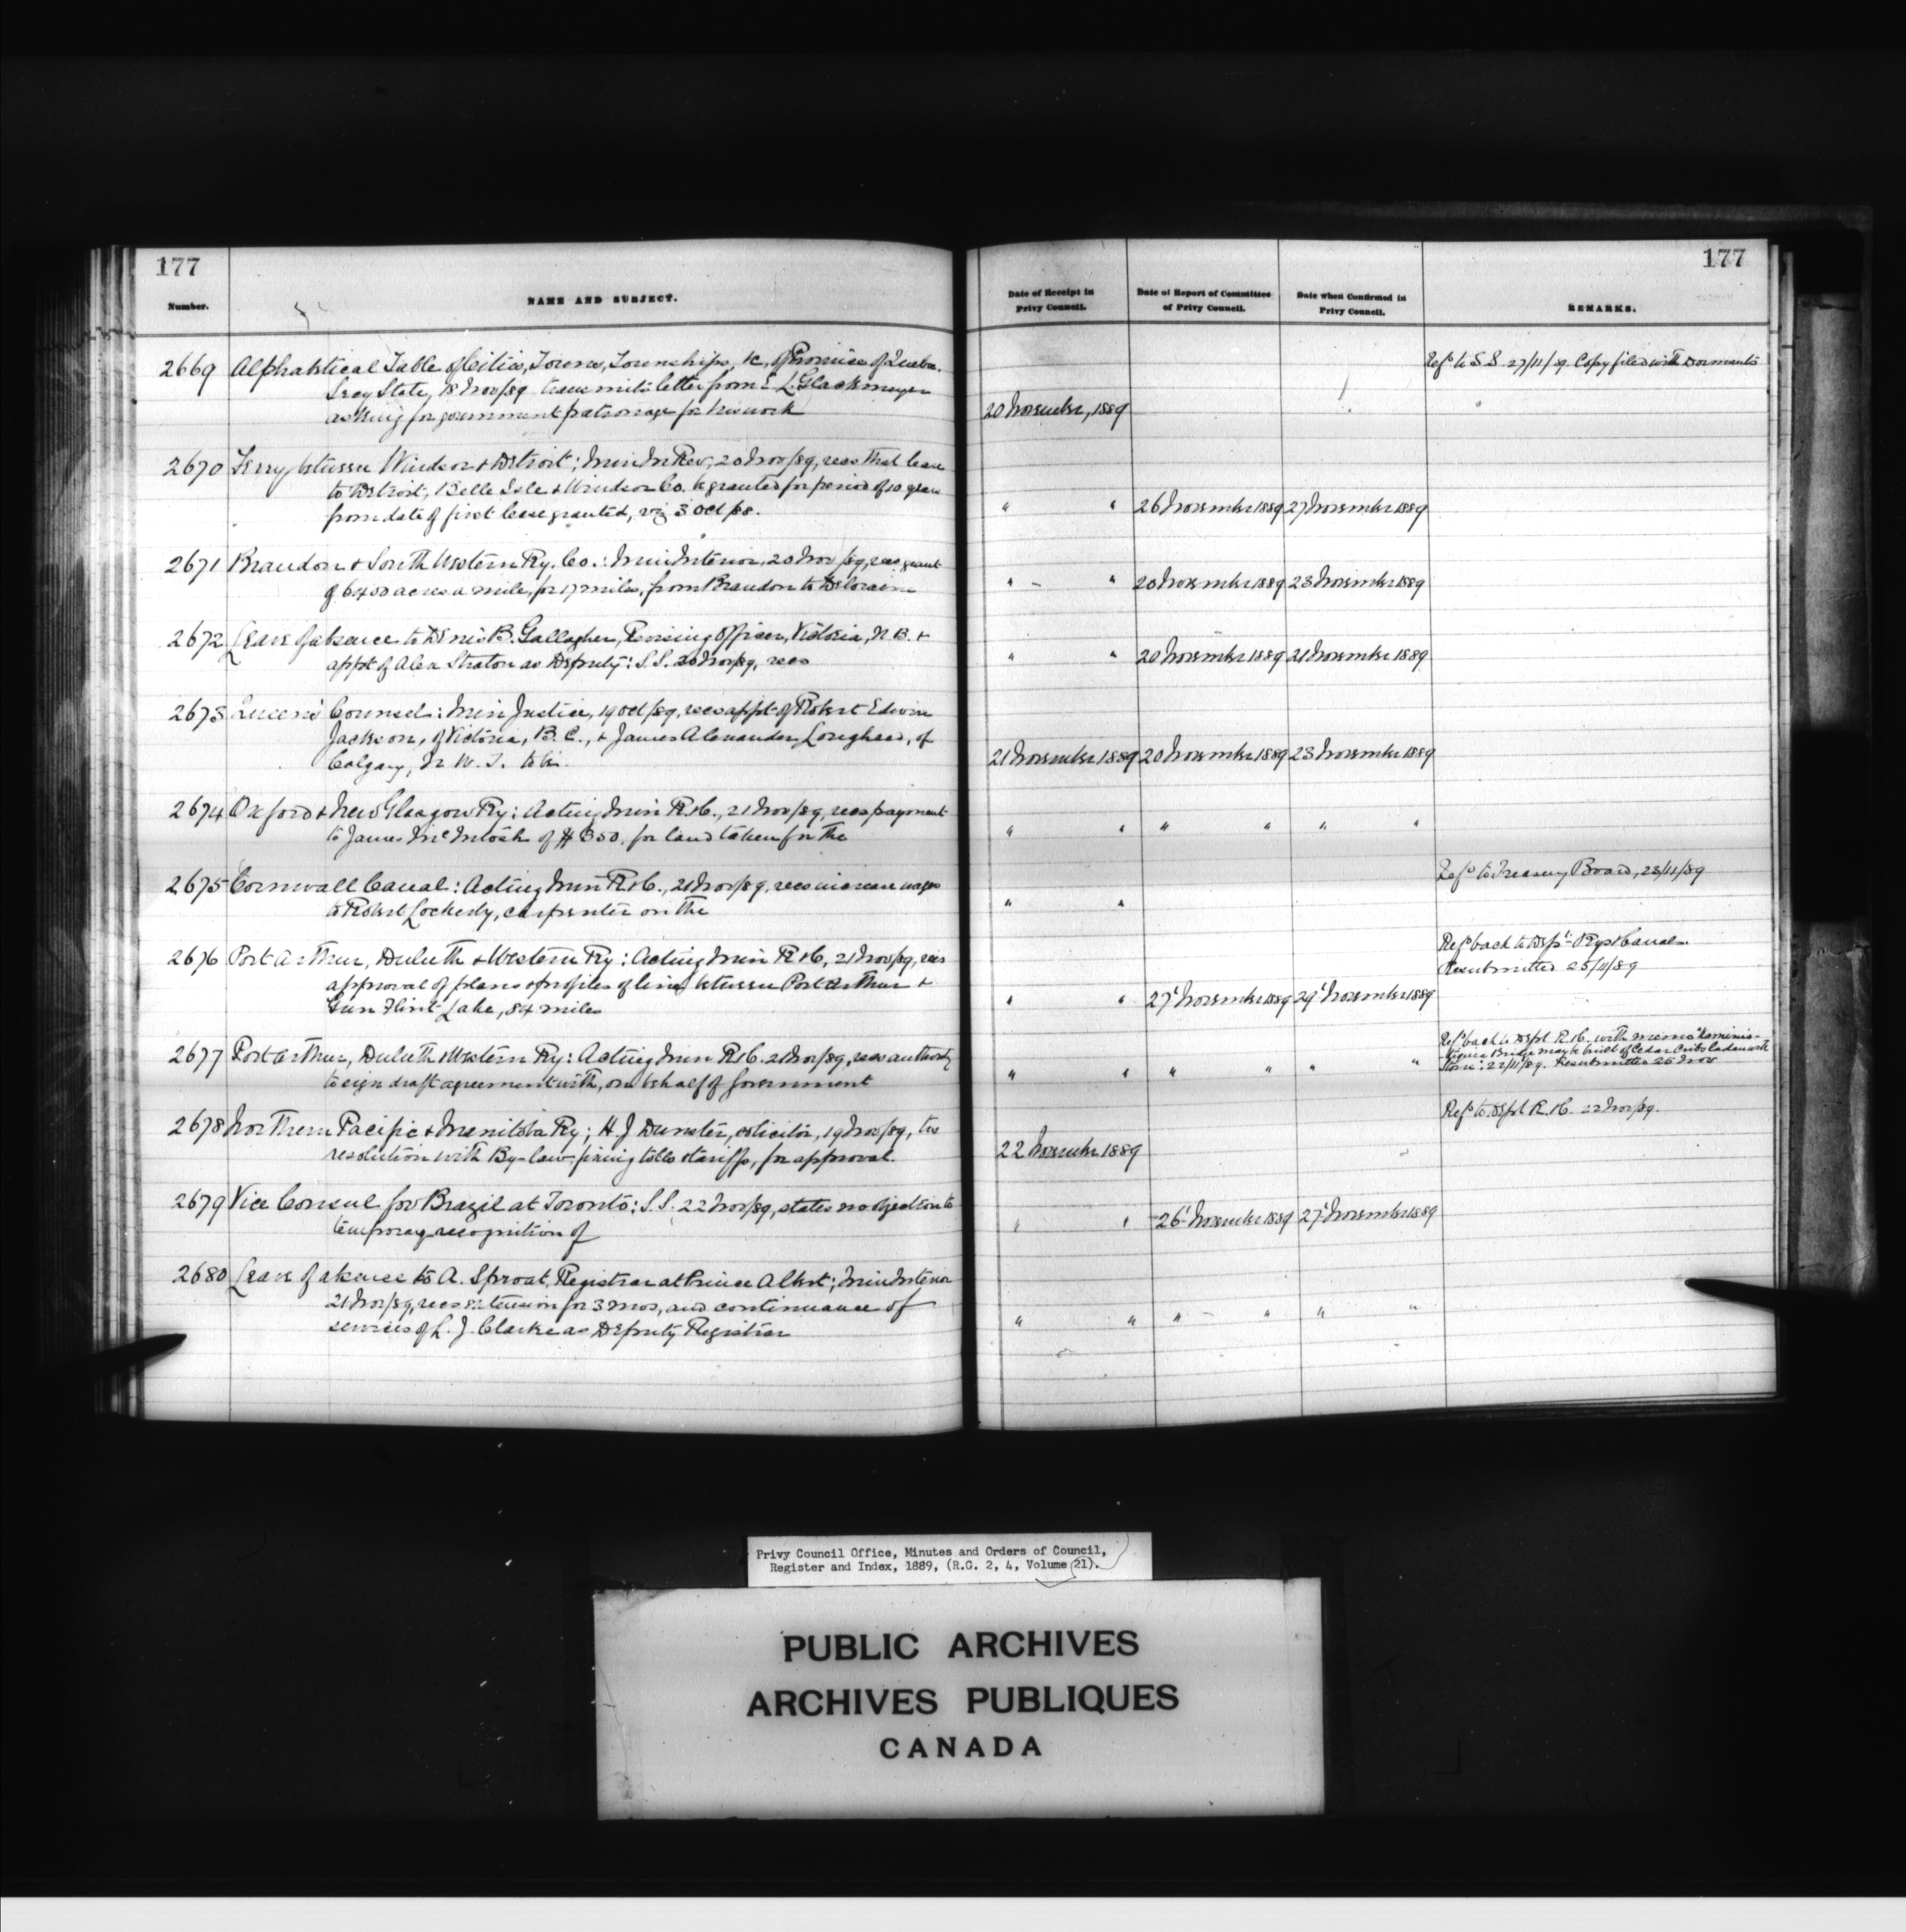 177
Number.
NAME AND SUBJECT.
Date of Receipt in Privy Council.
Date of Report of Committee of Privy Council.
Date when Confirmed in Privy Council.
REMARKS.
177
2669 Alphabetical Table of Cities, Towns, Townships, &c, of Province of Quebec.
Secy State, 18 Nov/89 transmits letter from L. Glackmeyer
asking for government patronage for his work
20 November, 1889
Refd to S.S. 27/11/89. Copy filed with Dormants
2670 Ferry between Windsor & Detroit; Min In Rev, 20 Nov/89, recs that lease
to Detroit, Belle Isle & Windsor Co. be granted for period of 10 years
from date of first lease granted, viz 3 Oct/88.
" " 26 November 1889 27 November 1889
2671 Brandon & South Western Ry. Co.: Min Interior, 20 Nov/89, recs grant
of 6400 acres a mile, for 17 miles, from Brandon to Deloraine
" " 20 November 1889 23 November 1889
2672 Leave of absence to Denis B. Gallagher, Revising Officer, Victoria, N.B. &
appt of Alex Straton as Deputy: S.S. 20 Nov/89, recs
" " 20 November 1889 21 November 1889
2673 Queen's Counsel: Min Justice, 19 Oct/89, recs appt of Robert Edwin
Jackson, of Victoria, B.C., & James Alexander Lougheed, of
Calgary, N.W.T. to be.
21 November 1889 20 November 1889 23 November 1889
2674 Oxford & New Glasgow Ry: Acting Min R&C., 21 Nov/89, recs payment
to James McIntosh of for land taken for the
" " " " " "
2675 Cornwall Canal: Acting Min R&C., 21 Nov/89, recs increase wages
to Robert Lockerby, carpenter on the
" "
Refd to Treasury Board, 23/11/89
2676 Port Arthur, Duluth & Western Ry: Acting Min R&C, 21 Nov/89, recs
approval of plans & profiles of line between Port Arthur &
Gun Flint Lake, 84 miles
" " 27 November 1889 29 November 1889
Refd back to Dept Rys & Canals
Resubmitted 25/11/89
2677 Port Arthur, Duluth & Western Ry: Acting Min R&C. 21 Nov/89, recs authority
to sign draft agreement with, on behalf of Government
" " " " " "
Refd back to Dept R.&C. with memo "Kaministiquia Bridge may be built of Cedar Cribs laden with
Stone". 22/11/89. Resubmitted 25 Nov
2678 Northern Pacific & Manitoba Ry; H. J. Dunster, solicitor, 19 Nov/89, trs
resolution with By-law fixing tolls & tariffs, for approval.
22 November 1889
Refd to Dept R.&C. 22 Nov/89.
2679 Vice Consul for Brazil at Toronto: S.S. 22 Nov/89, states no objection to
temporary recognition of
" " 26 November 1889 27 November 1889
2680 Leave of absence to A. Sproat, Registrar at Prince Albert; Min Interior
21 Nov/89, recs extension for 3 mos, and continuance of
services of L. J. Clarke as Deputy Registrar
" " " " " "
Privy Council Office, Minutes and Orders of Council,
Register and Index, 1889, (R.G. 2, 4, Volume 21).
PUBLIC ARCHIVES
ARCHIVES PUBLIQUES
CANADA